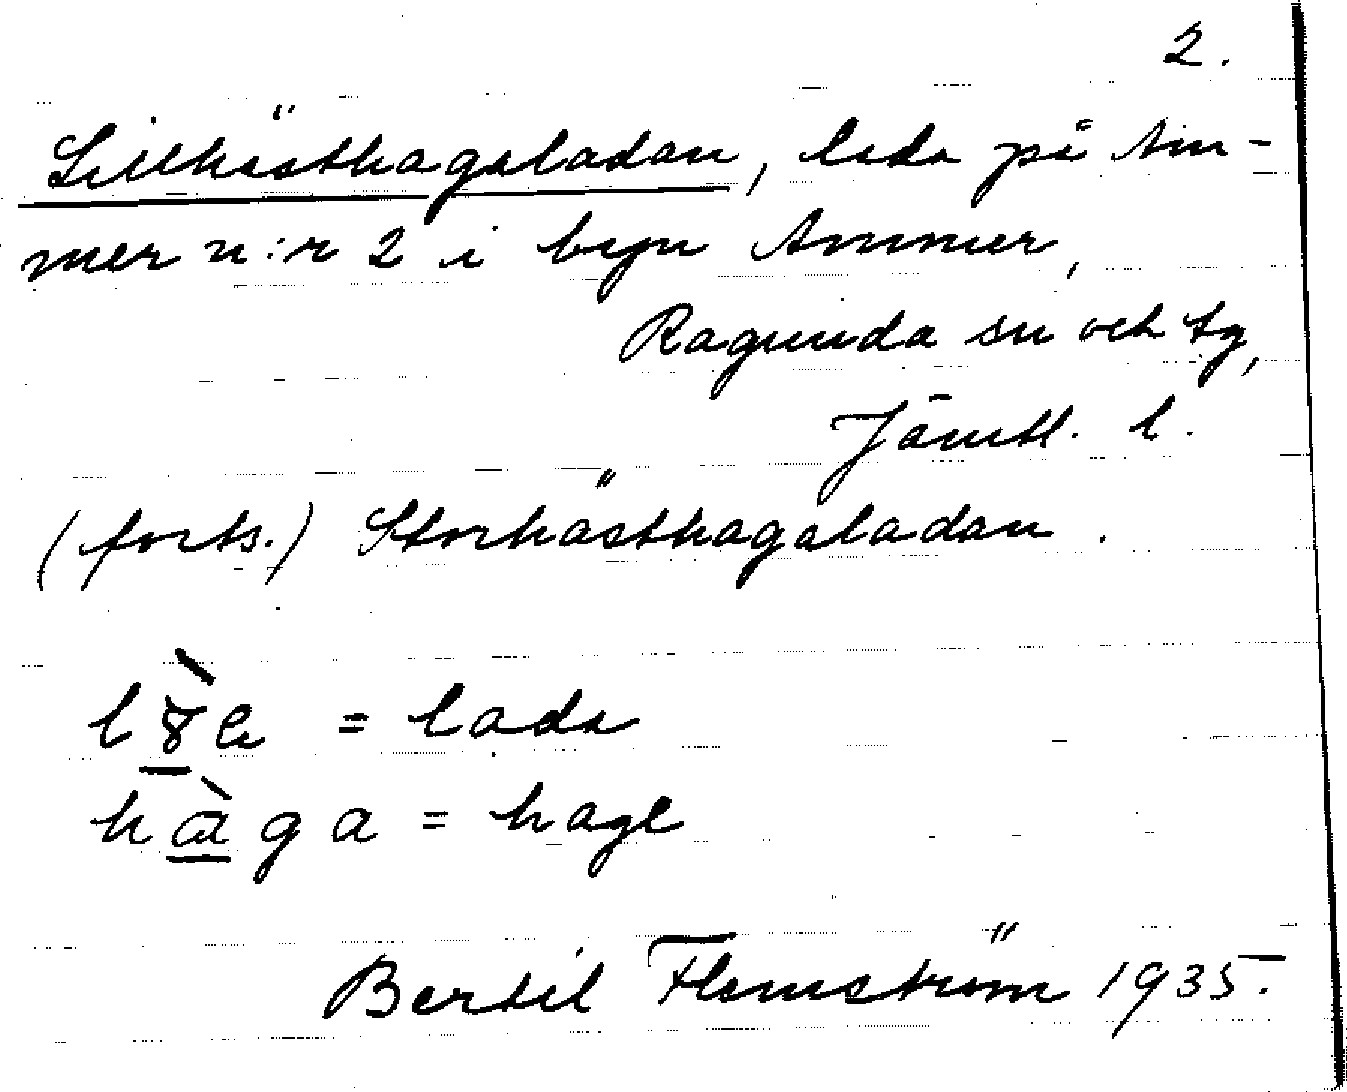 2.
Lillhästhagaladan, lada på Am-
mer n:r 2 i byn Ammer,
Ragunda sn och tg,
Jämtl. l.
(forts.) Storhästhagaladan.
= lada
hàga = hage
Bertil Flemström 1935.